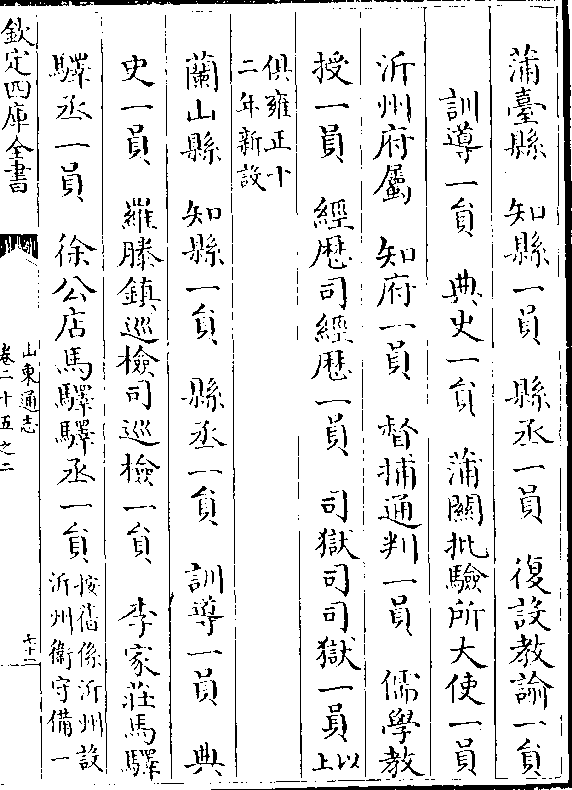 蒲臺縣　知縣一員　縣丞一員　復設教諭一員
訓導一員　典史一員　蒲關批驗所大使一員
沂州府屬　知府一員　督捕通判一員　儒學教
授一員　經歴司經歴一員　司獄司司獄一員以上
俱雍正十二年新設
蘭山縣　知縣一員　縣丞一員　訓導一員　典
史一員　羅滕鎮巡檢司巡檢一員　李家莊馬驛
驛丞一員　徐公店馬驛驛丞一員按舊係沂州設沂州衛守備一
欽定四庫全書
山東通志
卷二十五之二
七十二